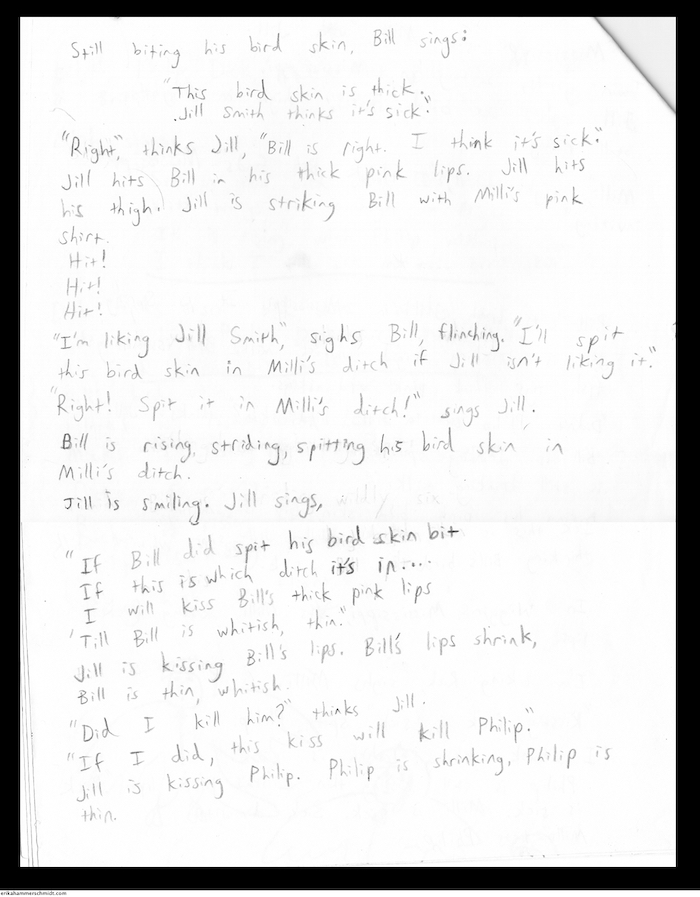 Still biting his bird skin, Bill sings:
"This bird skin is thick.
Jill Smith thinks it's sick."
"Right", thinks Jill, "Bill is right. I think it's sick."
Jill hits Bill in his thick pink lips. Jill hits
his thigh. Jill is striking Bill with Milli's pink
shirt.
Hit!
Hit!
Hit!
"I'm liking Jill Smith", sighs Bill, flinching. "I'll spit
this bird skin in Milli's ditch if Jill isn't liking it."
"Right! Spit it in Milli's ditch!" sings Jill.
Bill is rising, striding, spitting his bird skin in
Milli's ditch.
Jill is smiling. Jill sings,
"If Bill did spit his bird skin bit
If this is which ditch it's in....
I will kiss Bill's thick pink lips
'Till Bill is whitish, thin."
Jill is kissing Bill's lips. Bill's lips shrink,
Bill is thin, whitish.
"Did I kill him?" thinks Jill.
"If I did, this kiss will kill Philip."
Jill is kissing Philip. Philip is shrinking, Philip is
thin.
erikahammerschmidt.com